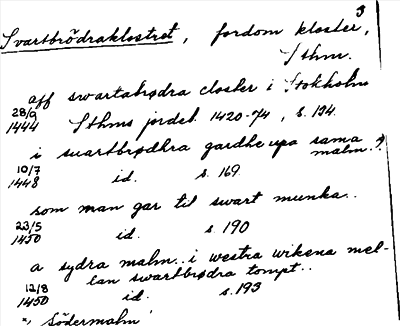 3
Svartbrödraklostret, fordom kloster,
Sthm.
aff swartabrødra closter i Stokholm
28/9 1444 Sthms jordeb. 1420-74, s. 194.
i suartbrødhra gardhe upa sama malm. *)
10/7 1448 id. s. 169.
som man gar til swart munka..
23/5 1450 id. s. 190
a sydra malm.. i westra wikena mel-
lan swartbrødra tompt..
12/8 1450 id. s. 193
*, Södermalm